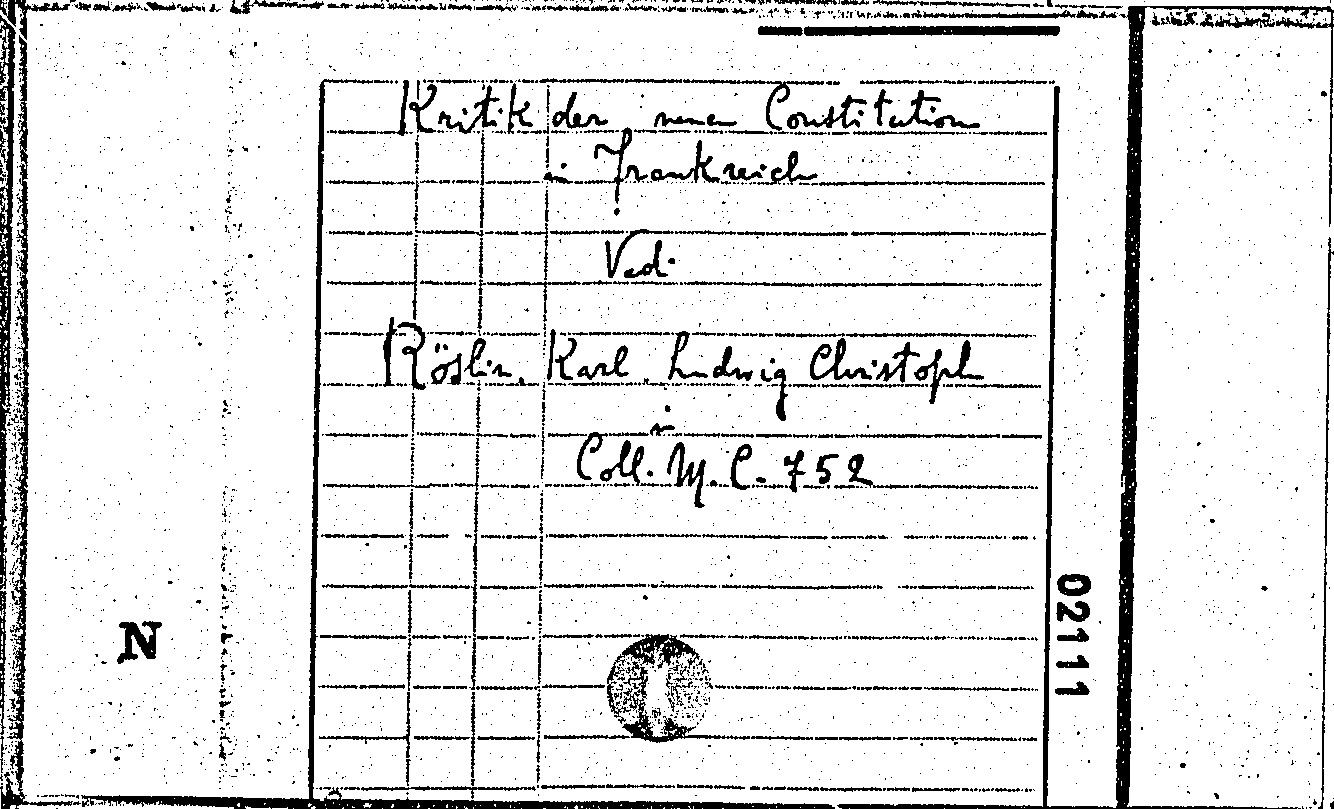 Kritik der neuen Constitution
in Frankreich
Vedi
Röslin, Karl Ludwig Christoph
in
Coll. M. C. 752
02111
N